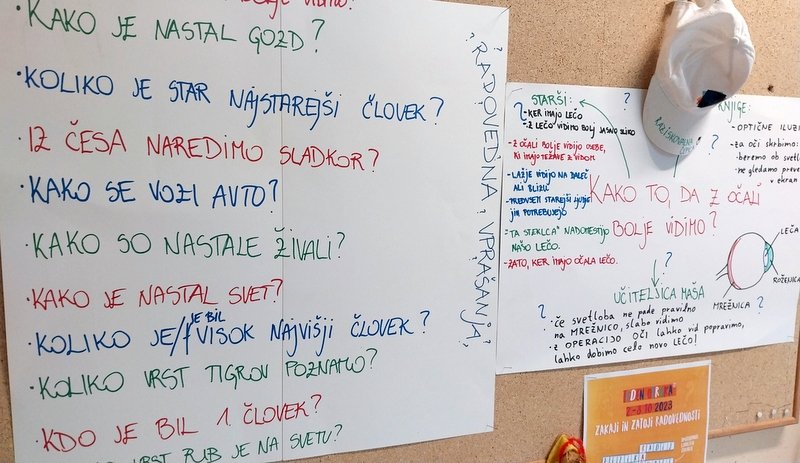 BOLJE VIDIMO?
• KAKO JE NASTAL GOZD?
• KOLIKO JE STAR NAJSTAREJŠI ČLOVEK?
• IZ ČESA NAREDIMO SLADKOR?
• KAKO SE VOZI AVTO?
• KAKO SO NASTALE ŽIVALI?
• KAKO JE NASTAL SVET?
JE BIL
• KOLIKO JE/ VISOK NAJVIŠJI ČLOVEK?
• KOLIKO VRST TIGROV POZNAMO?
• KDO JE BIL 1. ČLOVEK?
VRST RIB JE NA SVETU?
? RADOVEDNA VPRAŠANJA ?
STARŠI:
- KER IMAJO LEČO
- Z LEČO VIDIMO BOLJ JASNO SLIKO
- Z OČALI BOLJE VIDIJO OSEBE, KI IMAJO TEŽAVE Z VIDOM
- LAŽJE VIDIJO NA DALEČ
ALI BLIZU
- PREDVSEM STAREJŠI LJUDJE
JIH POTREBUJEJO
- "TA STEKLCA" NADOMESTIJO
NAŠO LEČO.
- ZATO, KER IMAJO OČALA LEČO.
KAKO TO, DA Z OČALI
BOLJE VIDIMO?
KNJIGE:
- OPTIČNE ILUZI
- za oči skrbimo:
beremo ob svetl
ne gledamo preve
v ekran
LEČA
ROŽENICA
MREŽNICA
UČITELJICA MAŠA
• če svetloba ne pade pravilno
na MREŽNICO, slabo vidimo
• z OPERACIJO OČI lahko vid popravimo,
lahko dobimo celo novo LEČO!
RAZISKOVALNA
2.-8. 10. 2023
ZAKAJI IN ZATOJI RADOVEDNOSTI